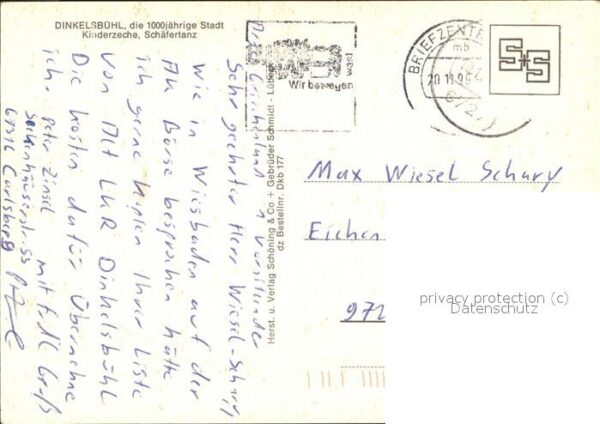 DINKELSBÜHL, die 1000jährige Stadt
Kinderzeche, Schäfertanz
Sehr geehrter Herr Wiesel-Schary,
wie in Wiesbaden auf der
AK Börse besprochen hätte
ich gerne Kopien Ihrer Liste
von Alt LKR Dinkelsbühl
Die Kosten dafür Übernehme
ich. Peter Zinsel mit frdl. Gruß
Carlsberg
Horst. u. Verlag Schöning & Co + Gebrüder Schmidt - Lübeck
dz Bestellnr. Dkb 177
was!
Wir bewegen
BRIEFZENTR
mb
S+S
Max Wiesel Schary
Eichen
972
privacy protection (c)
Datenschutz